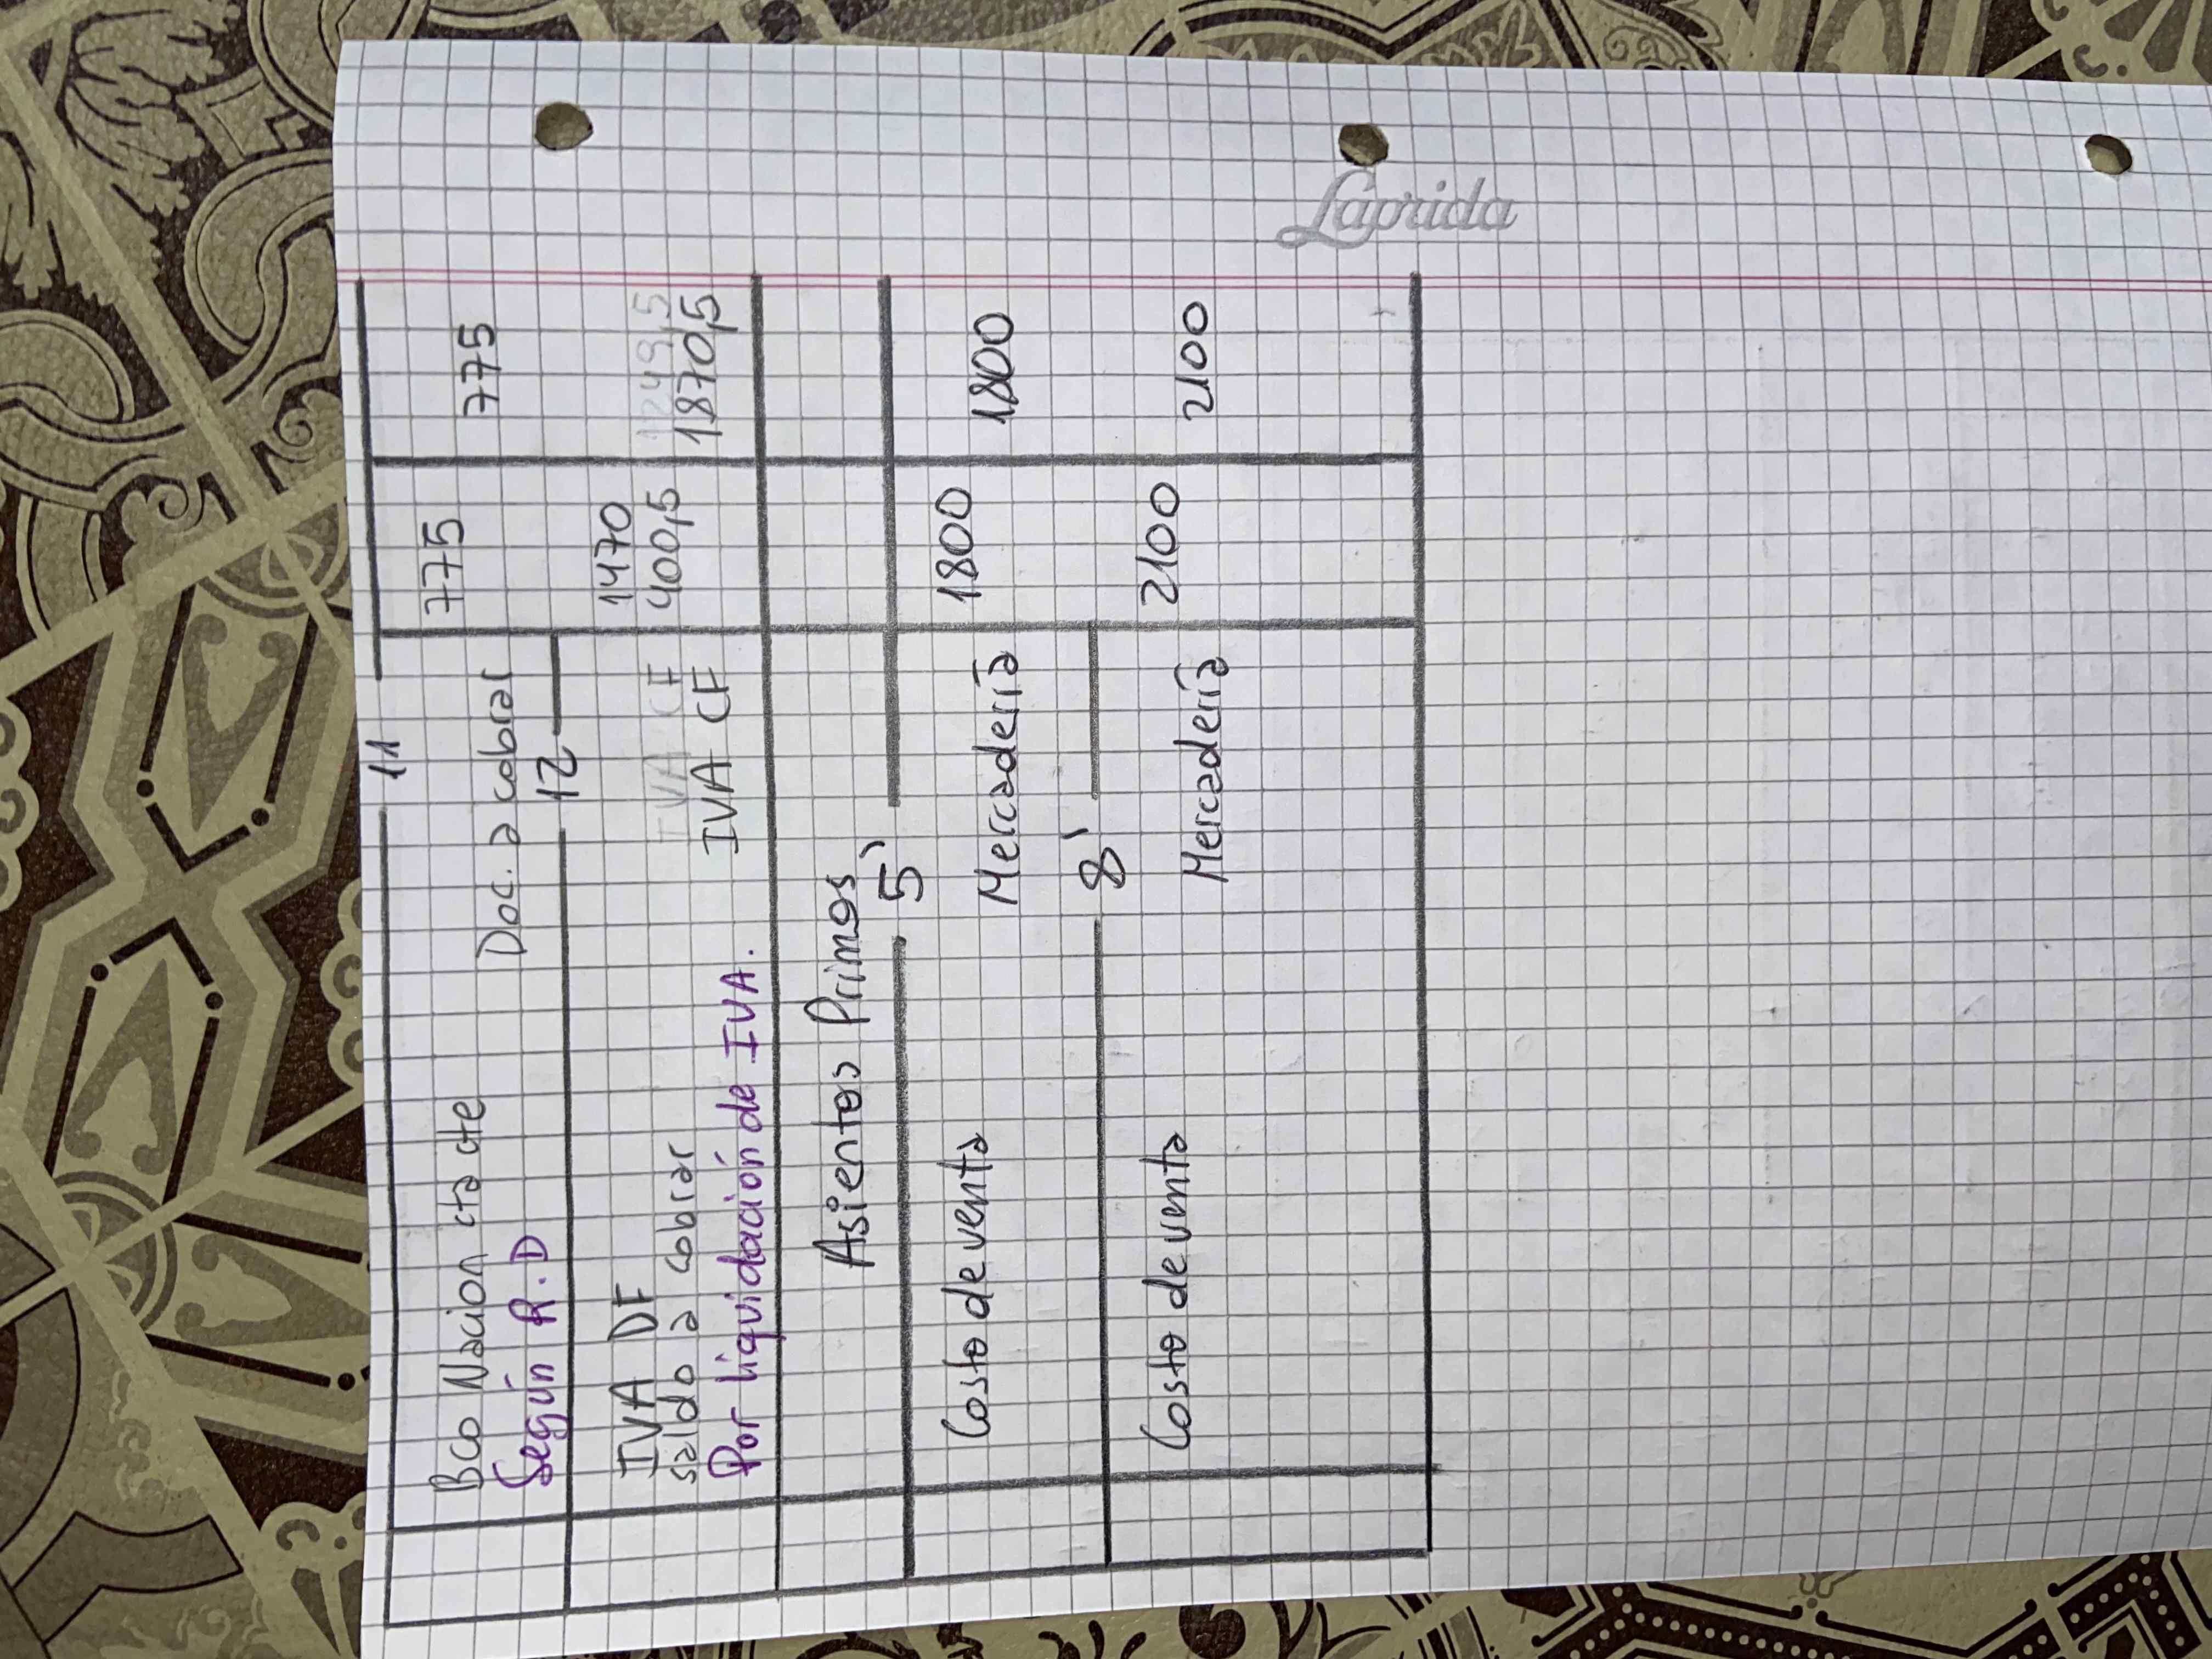 11
Bco Nacion cta cte 775
Doc. a cobrar 775
Según R.D
12
IVA DF 1470
saldo a cobrar 400,5
IVA CF 1249,5
IVA CF 1870,5
Por liquidación de IVA.
Asientos Primos
5'
Costo de venta 1800
Mercadería 1800
8'
Costo de venta 2100
Mercadería 2100
Laprida